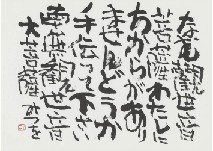 南無観世音
菩薩わたしに
ちからがあり
ませんどうか
手伝って下さい
南無観世音
大菩薩 みつを